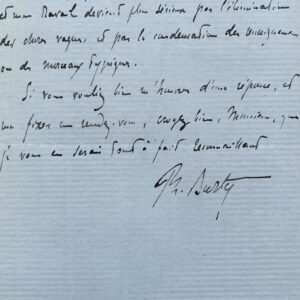 et mon travail devient plus sérieux par l'élimination
des choses vagues, et par la condensation des renseignements
ou de morceaux typiques.
Si vous vouliez bien m'honorer d'une réponse, et
me fixer un rendez-vous, croyez bien, Monsieur, que
je vous en serais tout à fait reconnaissant
Ph. Burty